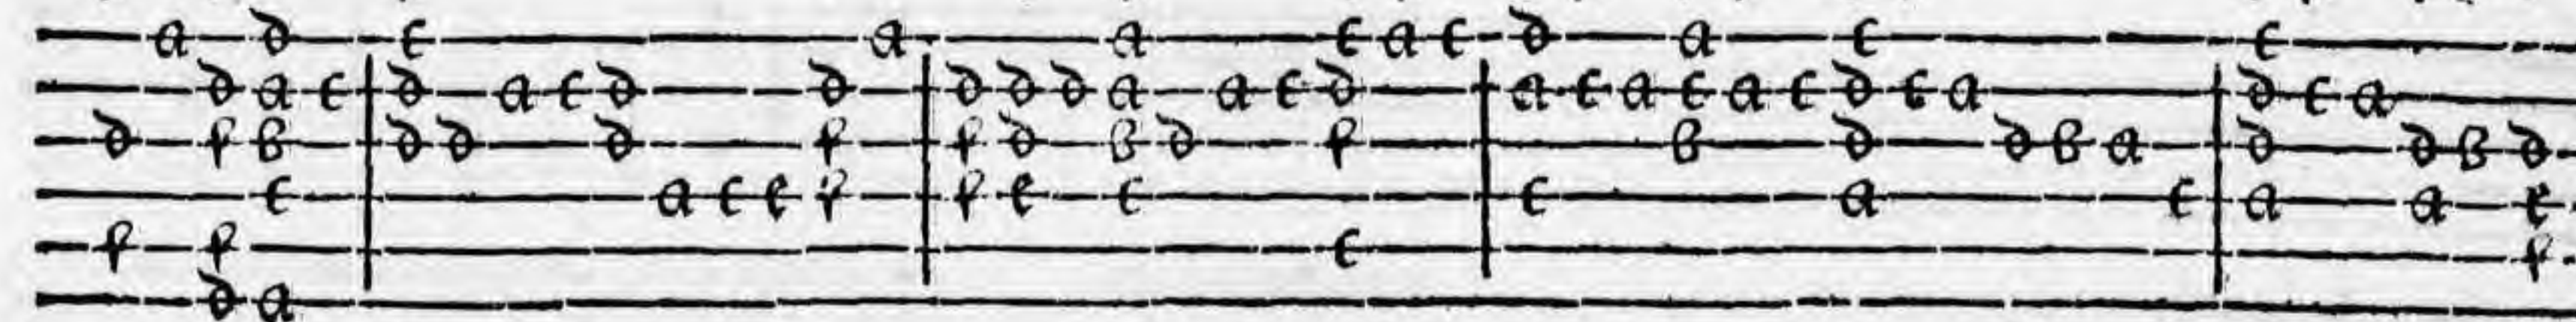 a d c a a c a c d a c c
d a c d a c d d d d d a a c d a c a c a c d c a d c a
d f b d d d f f d b d f b d d b a d d b d
c a c e f f e c c a c a a e
f f c f
d a